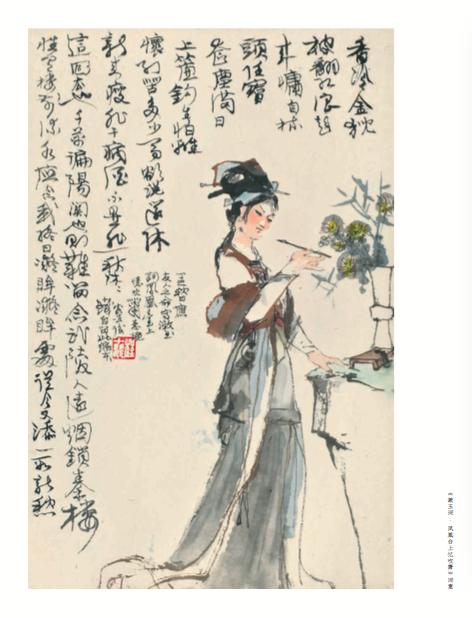 香冷金猊
被翻紅浪起
來慵自梳
頭任寶
奩塵滿日
上簾鈎生怕離
懷別苦多少事欲說還休
新來瘦非干病酒不是悲秋休
這回去也千萬遍陽關也則難留念武陵人遠烟鎖秦樓
惟有樓前流水應念我終日凝眸凝眸處從今又添一段新愁
秋日應
友人之命寫漱玉
詞鳳凰臺上
憶吹簫意境
《漱玉词·凤凰台上忆吹箫》词意